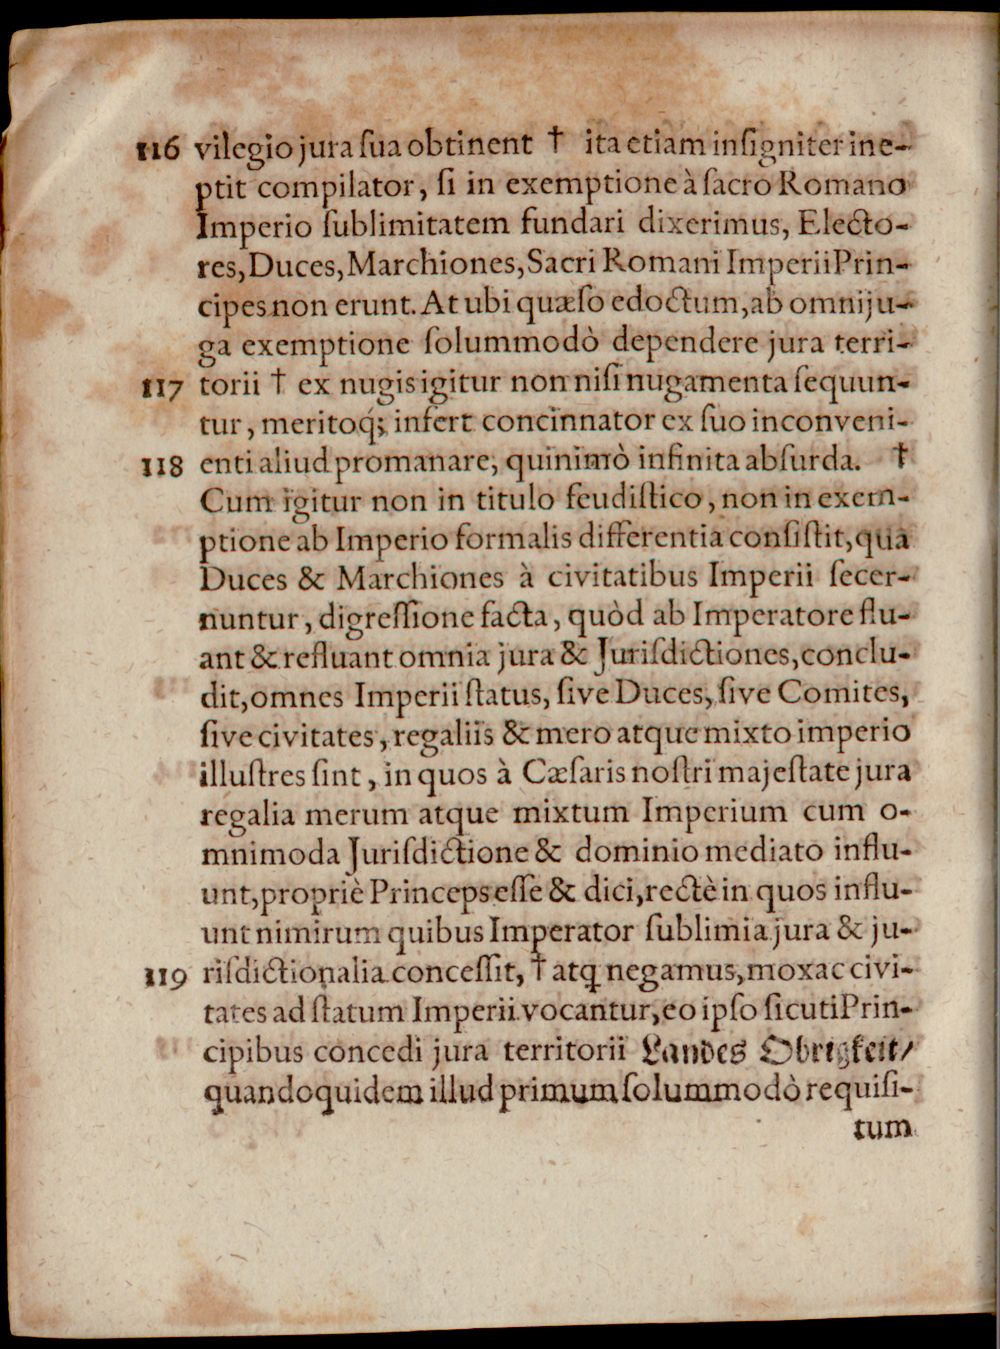 116 vilegio jura ſua obtinent † ita etiam inſigniter ine-
ptit compilator, ſi in exemptione à ſacro Romano
Imperio ſublimitatem fundari dixerimus, Electo-
res, Duces, Marchiones, Sacri Romani Imperii Prin-
cipes non erunt. At ubi quæſo edoctum, ab omni ju-
ga exemptione ſolummodò dependere jura terri-
117 torii † ex nugis igitur non niſi nugamenta ſequun-
tur, meritoq́; infert concinnator ex ſuo inconveni-
118 enti aliud promanare, quinimò infinita abſurda. †
Cum igitur non in titulo feudiſtico, non in exem-
ptione ab Imperio formalis differentia conſiſtit, qua
Duces & Marchiones à civitatibus Imperii ſecer-
nuntur, digreſſione facta, quòd ab Imperatore flu-
ant & refluant omnia jura & Jurisdictiones, conclu-
dit, omnes Imperii ſtatus, ſive Duces, ſive Comites,
ſive civitates, regaliis & mero atque mixto imperio
illuſtres ſint, in quos à Cæſaris noſtri majeſtate jura
regalia merum atque mixtum Imperium cum o-
mnimoda Jurisdictione & dominio mediato influ-
unt, propriè Princeps eſſe & dici, rectè in quos influ-
unt nimirum quibus Imperator ſublimia jura & ju-
119 riſdictionalia conceſſit, † atq negamus, mox ac civi-
tates ad ſtatum Imperii vocantur, eo ipſo ſicuti Prin-
cipibus concedi jura territorii Landes Obrigkeit/
quandoquidem illud primum ſolummodò requiſi-
tum